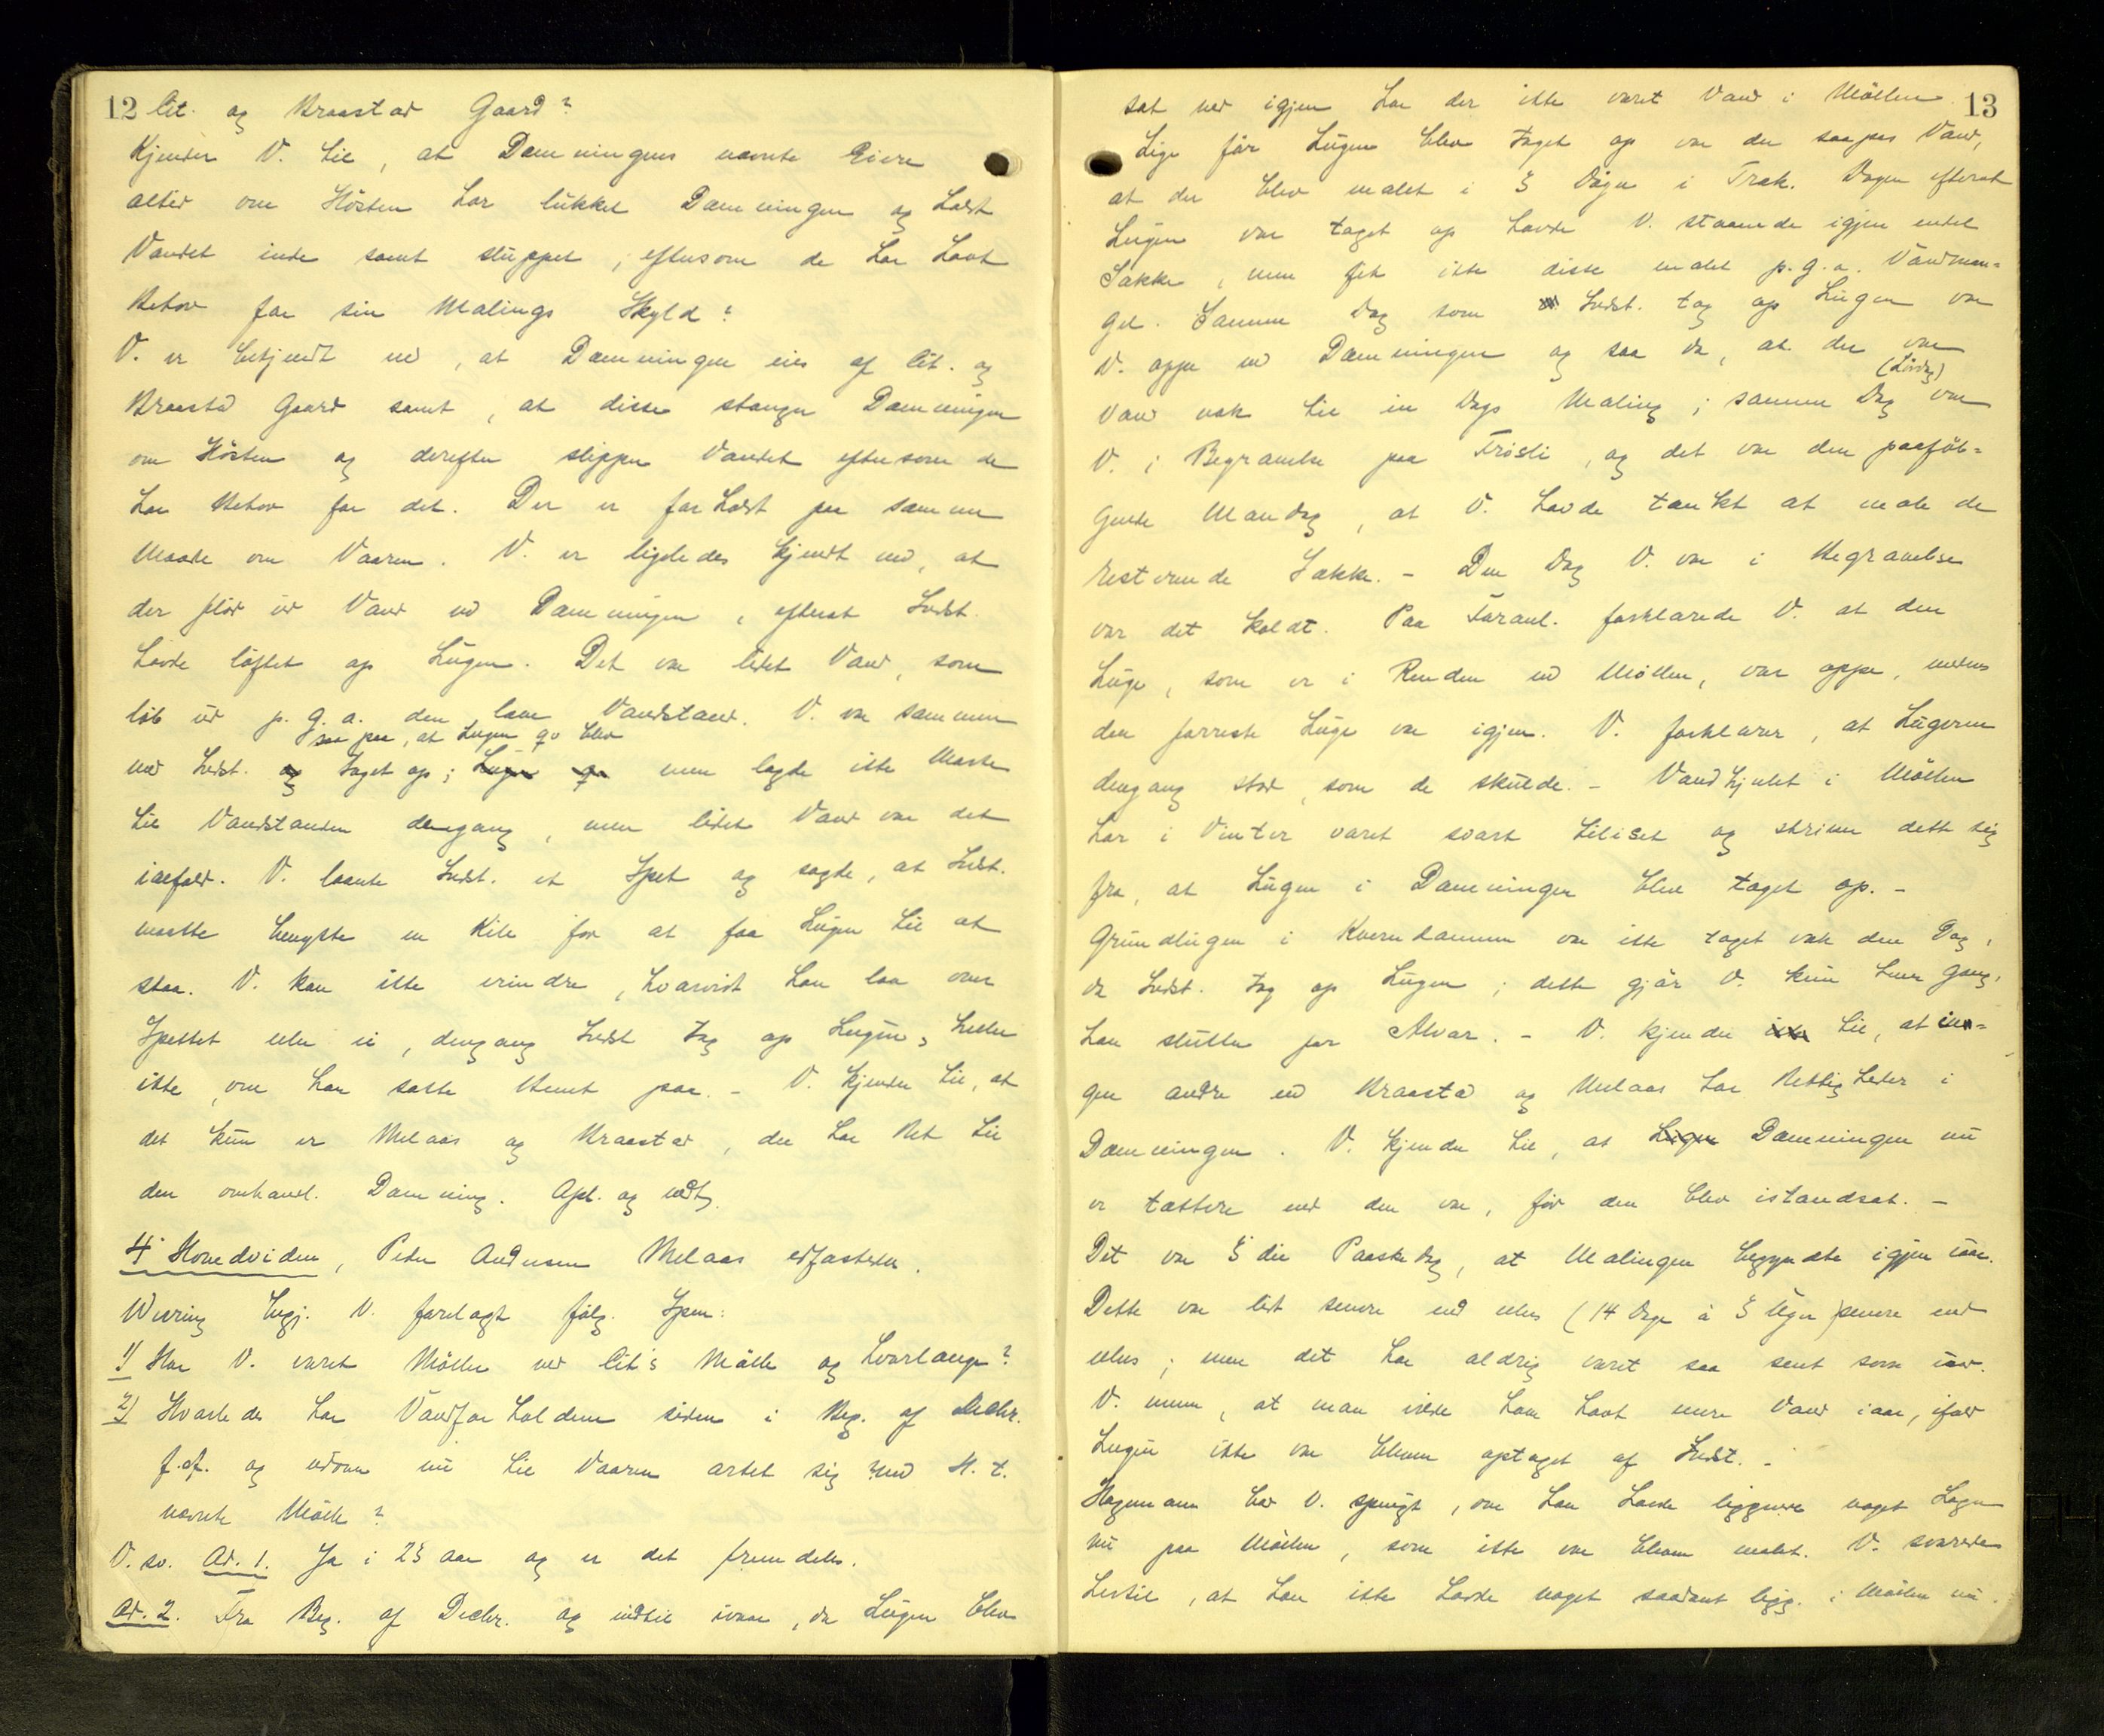 12 Cit. og Kraastad Gaard?
Kjender V. til, at Dæmningens nævnte Eiere
altid om Høsten har lukket Dæmningen og holdt
Vandet inde samt sluppet, eftersom de har havt
Behov for sin Malings Skyld?
V. er bekjendt med, at Dæmningen eies af Cit. og
Kraastad Gaard samt, at disse stænger Dæmningen
om Høsten og derefter slipper Vandet eftersom de
har Behov for det. Der er forholdt paa samme
Maade om Vaaren. V. er ligeledes kjendt med, at
der flød ud Vand ved Dæmningen, efterat Indst.
havde løftet op Lugen. Det var lidet Vand, som
løb ud p. g. a. den lave Vandstand. V. var sammen
saa paa, at Lugen qv blev
med Indst. og taget op; Lugen qv men lagde ikke Mærke
til Vandstanden dengang, men lidet Vand var det
ialfald. V. laante Indst. et Spet og sagde, at Indst.
maatte benytte en Kile for at faa Lugen til at
staa. V. kan ikke erindre, hvorvidt han laa over
Spettet eller ei, dengang Indst tog op Lugen, heller
ikke, om han satte Benet paa. – V. kjender til, at
det kun er Melaas og Kraastad, der har Ret til
den omhandl. Dæmning. Opl. og vedt.
4' Hovedviden, Peder Andersen Melaas edfæstedes.
Wiering begj. V. forelagt følg. Spm:
1) Har V. været Møller ved Cit's Mølle og hvorlænge?
2) Hvorledes har Vandforholdene siden i Beg. af Decbr.
f. A. og udover nu til Vaaren artet sig med H. t.
nævnte Mølle?
V. sv. Ad. 1. Ja i 23 Aar og er det fremdeles.
Ad. 2. Fra Beg. af Decbr. og indtil ivaar, da Lugen blev
sat ned igjen har der ikke været Vand i Møllen. 13
Lige før Lugen blev taget op var der saapas Vand,
at der blev malet i 3 Døgn i Træk. Dagen efterat
Lugen var taget op havde V. staaende igjen endel
Sække, men fik ikke disse malet p. g. a. Vandman-
gel. Samme Dag som Indst. tog op Lugen var
V. oppe ved Dæmningen og saa da, at der var
(Lørdag)
Vand nok til en Dags Maling; samme Dag var
V. i Begravelse paa Frøsli, og det var den paaføl-
gende Mandag, at V. havde tænkt at male de
resterende Sække. – Den Dag V. var i Begravelse
var det koldt. Paa Foranl. forklarede V. at den
Luge, som er i Renden ved Møllen, var oppe, medens
den forreste Luge var igjen. V. forklarer, at Lugerne
dengang stod, som de skulde. – Vandhjulet i Møllen
har i Vinter været svært tiliset og skriver dette sig
fra, at Lugen i Dæmningen blev taget op. –
Grundlugen i Kverndammen var ikke taget væk den Dag,
da Indst. tog op Lugen; dette gjør V. kun hver Gang,
han slutter for Alvor. – V. kjender ikke til, at in-
gen andre end Kraastad og Melaas har Rettigheder i
Dæmningen. V. kjender til, at Lugen Dæmningen nu
er tættere end den var, før den blev istandsat. –
Det var 3die Paaskedag, at Malingen begyndte igjen iaar.
Dette var lidt senere end ellers (14 Dage à 3 Uger) senere end
ellers; men det har aldrig været saa sent som iaar.
V. mener, at man vilde have havt mere Vand iaar, ifald
Lugen ikke var bleven optaget af Indst. –
Hagemann bad V. spurgt, om han havde liggende noget Lager
nu paa Møllen, som ikke var bleven malet. V. svarede
hertil, at han ikke havde noget saadant ligg. i Møllen nu.